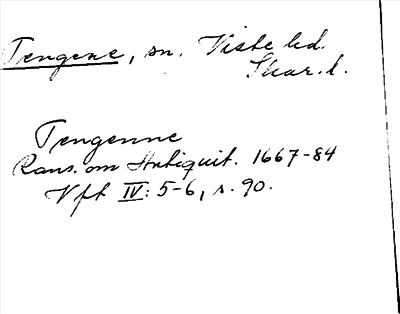 Tengene, sn. Viste hd.
Skar. l.
Tengenne
Rans. om Antiquit. 1667-84
Vft IV: 5-6, s. 90.